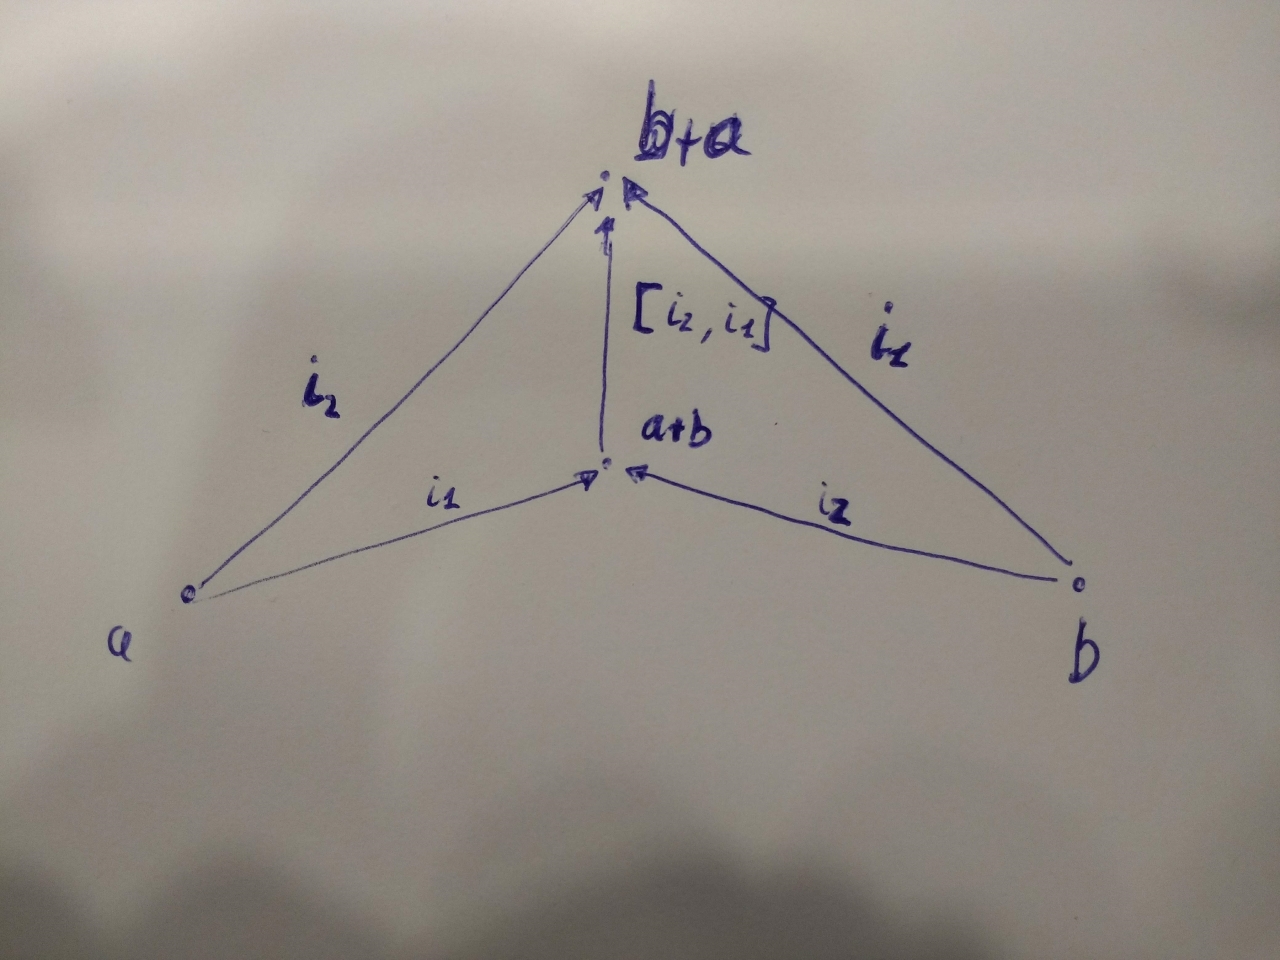 b+a
[i₂, i₁]
i₁
i₂
a+b
i₁
i₂
a
b